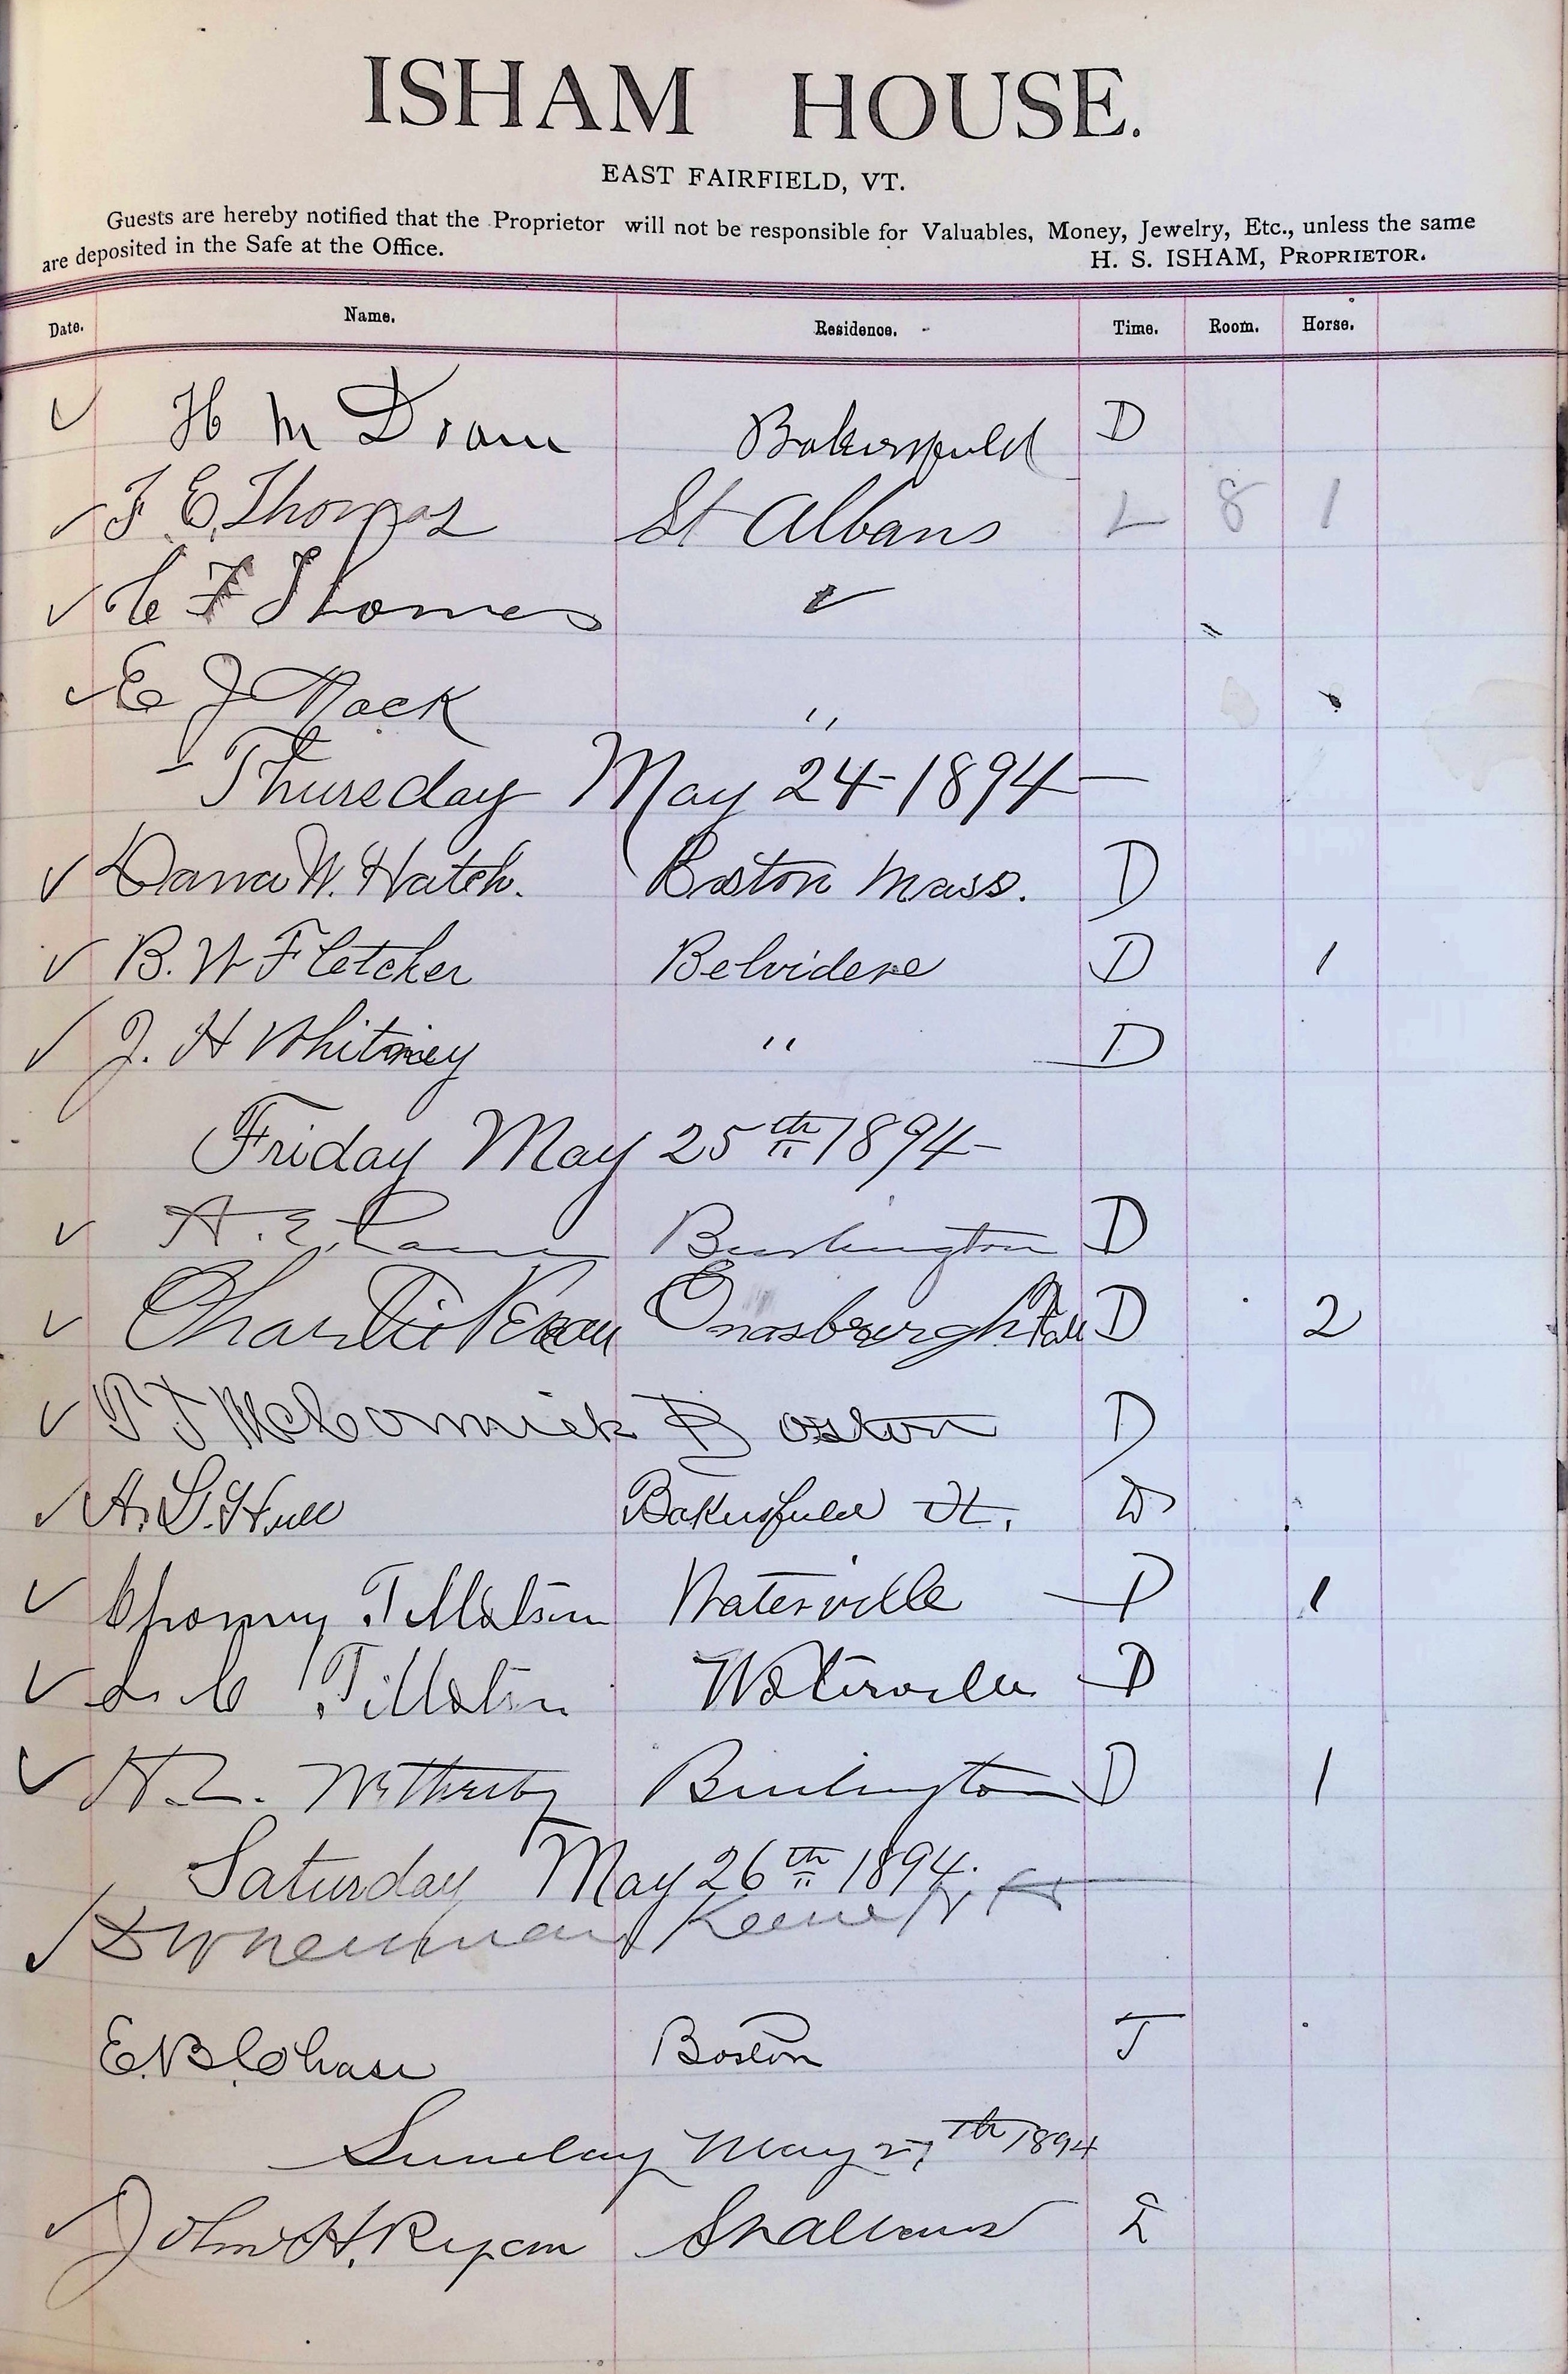 ISHAM HOUSE.
EAST FAIRFIELD, VT.
Guests are hereby notified that the Proprietor will not be responsible for Valuables, Money, Jewelry, Etc., unless the same
are deposited in the Safe at the Office. H. S. ISHAM, PROPRIETOR.
Date. Name. Residence. Time. Room. Horse.
✓ H M Bakersfield D
✓ F. E. Thomas St Albans L 8 1
✓ C F Thomas ✓
✓ E J "
- Thursday May 24 - 1894 —
✓ Dana W. Hatch. Boston Mass. D
✓ B. W Fletcher Belvidere D 1
✓ J. H Whitney " D
Friday May 25th 1894 -
✓ A. E. Burlington D
✓ Charlie Enosburgh Fall D 2
✓ P J McCormick Boston D
✓ A. G. Hull Bakersfield Vt. D
✓ Tillotson Waterville D 1
✓ L. C Tillotson Waterville D
✓ H. L. Wetherby Burlington D 1
Saturday May 26th 1894.
✓ Newman Keene N H
E. B. Chase Boston T
Sunday May 27th 1894
✓ John H. Ryan L